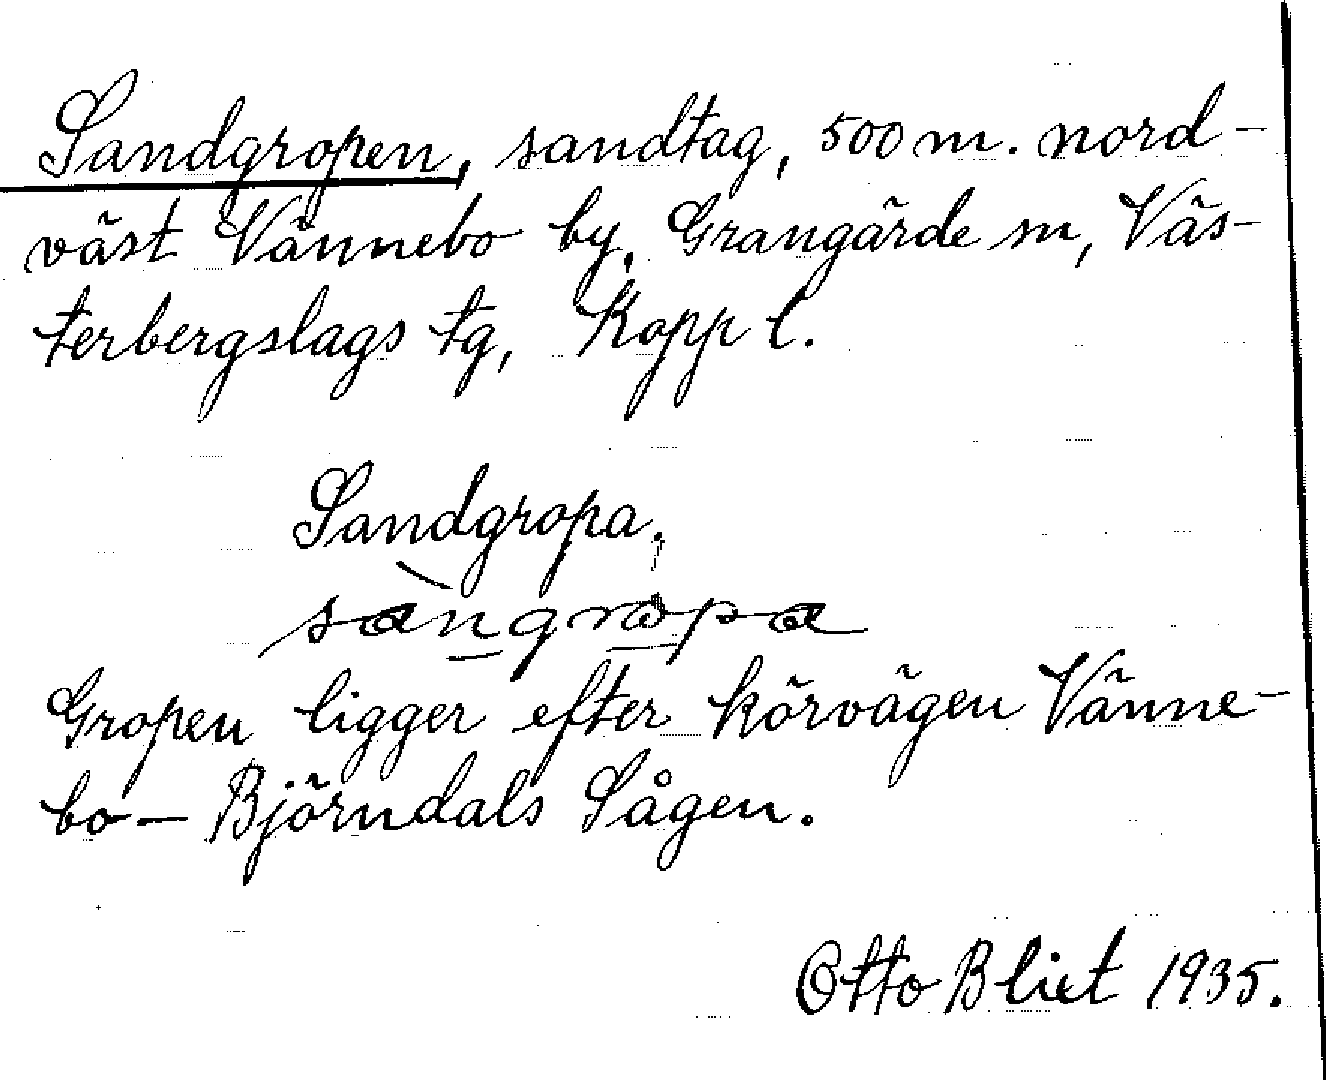 Sandgropen, sandtag, 500 m. nord-
väst Vännebo by, Grangärde sn, Väs-
terbergslags tg, Kopp l.
Sandgropa.
sàngropa
Gropen ligger efter körvägen Vänne-
bo – Björndals Sågen.
Otto Bliet 1935.